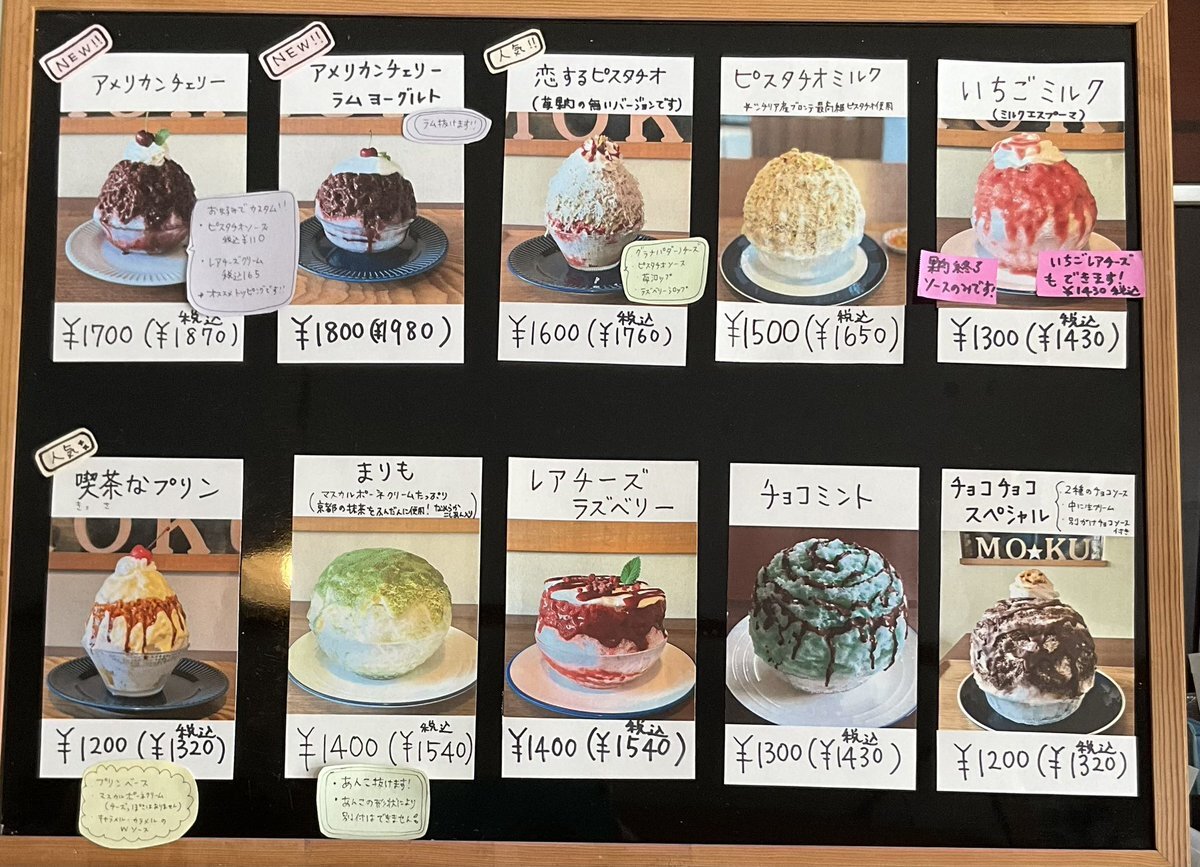 NEW!!
アメリカンチェリー
お好みでカスタム!!
・ピスタチオソース
税込¥110
・レアチーズクリーム
税込165
オススメトッピングです!!
¥1700(税込¥1870)
NEW!!
アメリカンチェリー
ラムヨーグルト
ラム抜けます!!
¥1800(¥1980)
人気!!
恋するピスタチオ
(苺果肉の無いバージョンです)
グラナパダーノチーズ
・ピスタチオソース
・苺シロップ
・ラズベリーシロップ
¥1600(税込¥1760)
ピスタチオミルク
シチリア産ブロンテ最高級ピスタチオ使用
¥1500(税込¥1650)
いちごミルク
(ミルクエスプーマ)
果肉終了
ソースのみです。
いちごレアチーズ
もできます!
¥1430税込
¥1300(税込¥1430)
人気
喫茶なプリン
きっさ
OKU
¥1200(税込¥1320)
・プリンベース
マスカルポーネクリーム
(チーズっぽさはありません)
キャラメル・カラメルの
Wソース
まりも
(マスカルポーネクリームたっぷり
京都の抹茶をふんだんに使用!
¥1400(税込¥1540)
・あんこ抜けます!
・あんこの形状により
別付はできません
レアチーズ
ラズベリー
¥1400(税込¥1540)
チョコミント
¥1300(税込¥1430)
チョコチョコ
スペシャル
・2種のチョコソース
・中に生クリーム
・別がけチョコソース
付き
MO★KU
¥1200(税込¥1320)